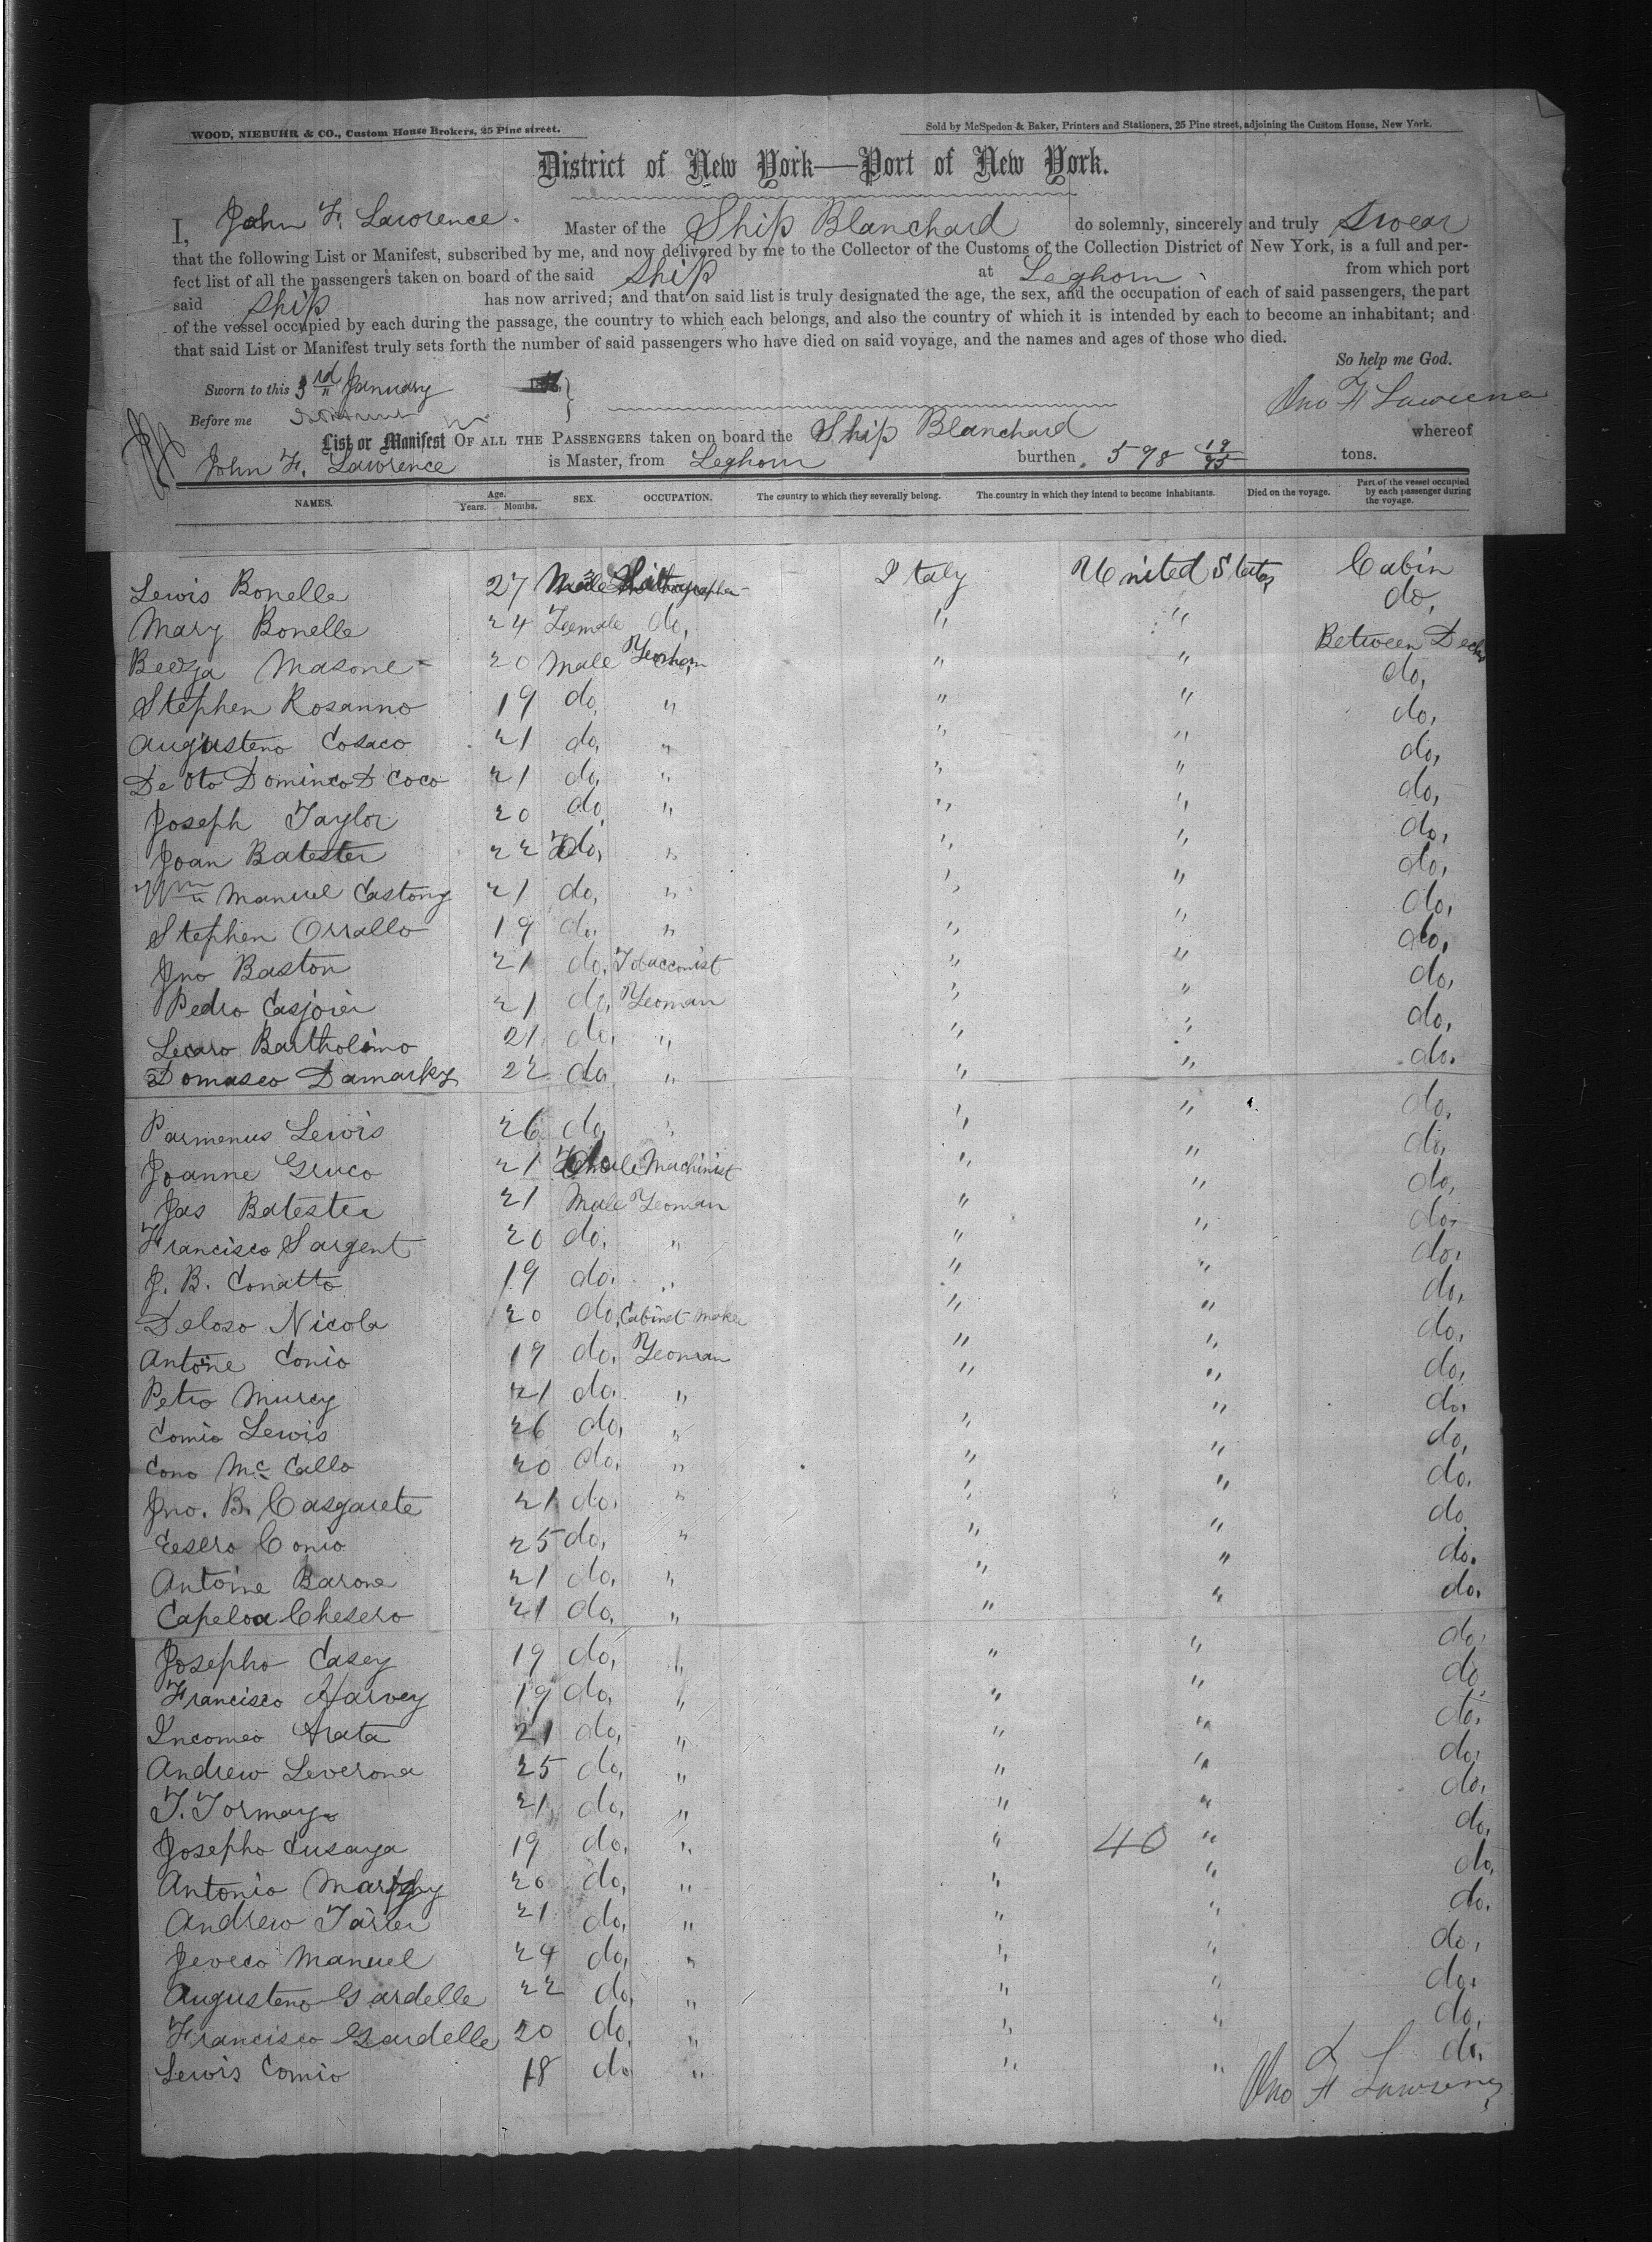 WOOD, NIEBUHR & CO., Custom House Brokers, 25 Pine street.
Sold by McSpedon & Baker, Printers and Stationers, 25 Pine street, adjoining the Custom House, New York.
District of New York—Port of New York.
I, John F. Lawrence. Master of the Ship Blanchard do solemnly, sincerely and truly swear
that the following List or Manifest, subscribed by me, and now delivered by me to the Collector of the Customs of the Collection District of New York, is a full and per-
fect list of all the passengers taken on board of the said ship at Leghorn from which port
said ship has now arrived; and that on said list is truly designated the age, the sex, and the occupation of each of said passengers, the part
of the vessel occupied by each during the passage, the country to which each belongs, and also the country of which it is intended by each to become an inhabitant; and
that said List or Manifest truly sets forth the number of said passengers who have died on said voyage, and the names and ages of those who died.
So help me God.
Sworn to this 3rd January
Jno F Lawrence
Before me
List or Manifest OF ALL THE PASSENGERS taken on board the Ship Blanchard whereof
John F. Lawrence is Master, from Leghorn burthen 598 19/95 tons.
NAMES. Age. Years. Months. SEX. OCCUPATION. The country to which they severally belong. The country in which they intend to become inhabitants. Died on the voyage. Part of the vessel occupied by each passenger during the voyage.
Lewis Bonelle 27 Male Italy United States Cabin
Mary Bonelle 24 Female do, " " do,
Masone 20 Male Yeoman " " Between Decks
Stephen Rosanno 19 do, " " " do,
Augusteno Cosaco 21 do, " " " do,
De Oto Dominco D Coco 21 do, " " " do,
Joseph Taylor 20 do, " " " do,
Joan Batester 22 do, " " " do,
Wm Manuel Castong 21 do, " " " do,
Stephen Orrallo 19 do, " " " do,
Jno Baston 21 do, Tobacconist " " do,
Pedro Casjoier 21 do, Yeoman " " do,
Lecaro Bartholomo 21 do, " " " do,
Domasco Damarky 22 do, " " " do.
Parmenus Lewis 26 do, " " " do,
Joanne Gruco 21 Machinist " " do,
Jas Batester 21 Male Yeoman " " do,
Francisco Sargent 20 do, " " " do,
J. B. Conatto 19 do. " " " do.
Deloso Nicola 20 do, Cabinet maker " " do,
Antoine Conio 19 do. Yeoman " " do,
Petro Murcy 21 do. " " " do,
Comio Lewis 26 do, " " " do,
Cono Mc Callo 20 do. " " " do,
Jno. B. Casgarete 21 do. " " " do.
Eesero Conio 25 do, " " " do,
Antoine Barone 21 do, " " " do.
Capeloa Chesero 21 do, " " " do.
Josepho Casey 19 do, " " " do,
Francisco Harvey 19 do, " " " do,
Incomeo Arata 21 do, " " " do,
Andrew Leverona 25 do, " " " do,
T. Tormayo 21 do, " " " do,
Josepho Cusaya 19 do. " " 40 " do,
Antonio 20 do, " " " do,
Andrew Tarier 21 do, " " " do.
Jeveco Manuel 24 do, " " " do,
Augusteno Gardelle 22 do, " " " do.
Francisco Gardelle 20 do, " " " do,
Lewis Comio 18 do " " " do,
Jno F Lawrence